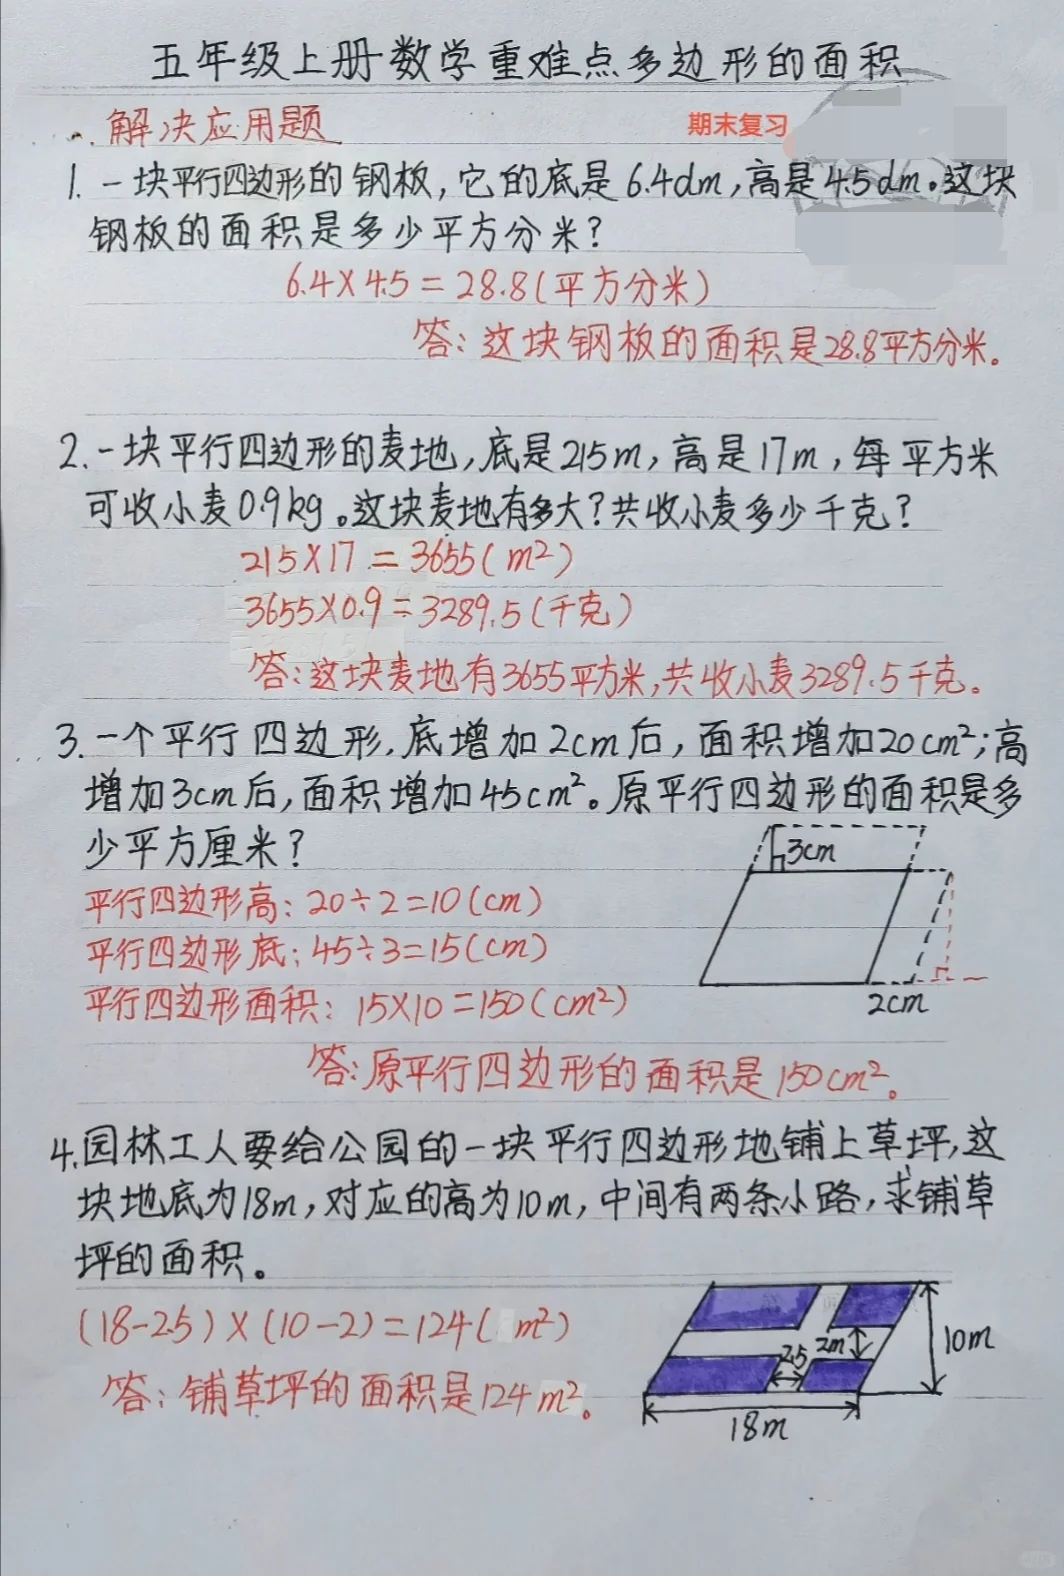 五年级上册数学重难点多边形的面积
一.解决应用题
期末复习
1.一块平行四边形的钢板,它的底是6.4dm,高是4.5dm。这块
钢板的面积是多少平方分米?
6.4×4.5=28.8(平方分米)
答:这块钢板的面积是28.8平方分米。
2.一块平行四边形的麦地,底是215m,高是17m,每平方米
可收小麦0.9kg。这块麦地有多大?共收小麦多少千克?
215×17=3655(m²)
3655×0.9=3289.5(千克)
答:这块麦地有3655平方米,共收小麦3289.5千克。
3.一个平行四边形,底增加2cm后,面积增加20cm²;高
增加3cm后,面积增加45cm²。原平行四边形的面积是多
少平方厘米?
3cm
平行四边形高:20÷2=10(cm)
平行四边形底:45÷3=15(cm)
平行四边形面积:15×10=150(cm²)
2cm
答:原平行四边形的面积是150cm²。
4.园林工人要给公园的一块平行四边形地铺上草坪,这
块地底为18m,对应的高为10m,中间有两条小路,求铺草
坪的面积。
(18-2.5)×(10-2)=124(m²)
2m
10m
2.5
答:铺草坪的面积是124m²。
18m